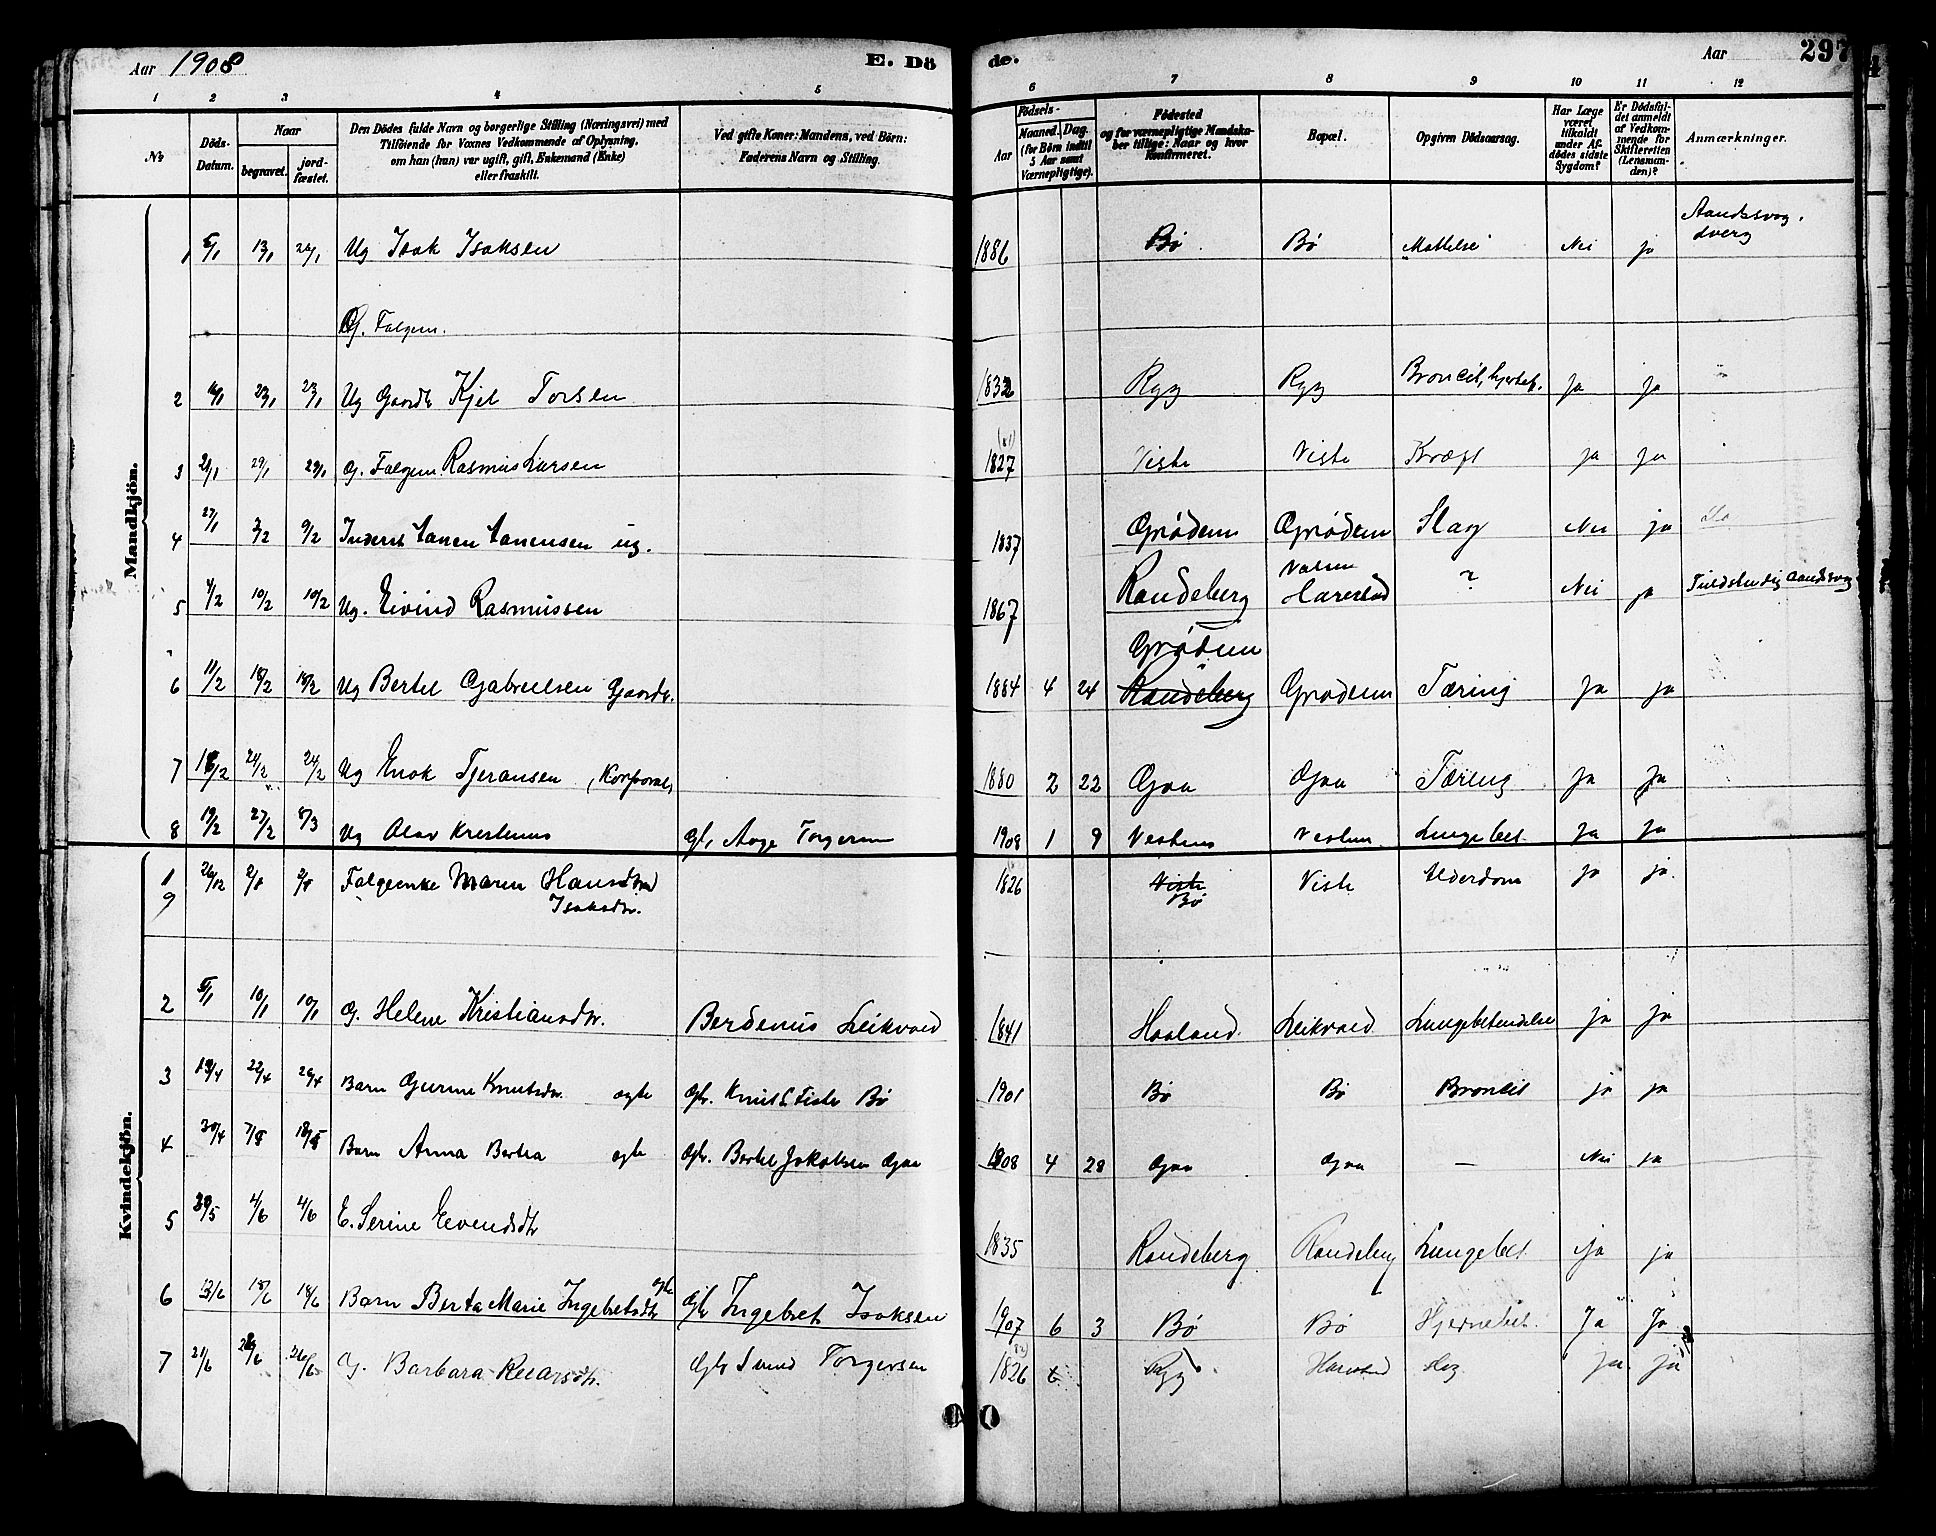 Aar 1908
E. Dö
de.
Aar
297
1 2 3 4 5 6 7 8 9 10 11 12
No
Döds-Datum.
Naar
begravet.
jord-fæstet.
Den Dödes fulde Navn og borgerlige Stilling (Næringsvei) med
Tilföiende for Voxnes Vedkommende af Oplysning,
om han (hun) var ugift, gift, Enkemand (Enke)
eller fraskilt.
Ved gifte Koner: Mandens, ved Börn:
Faderens Navn og Stilling.
Födsels-
Aar
Maaned. Dag.
(for Börn indtil
5 Aar samt
Værnepligtige).
Födested
og for værnepligtige Mandska-
ber tillige: Naar og hvor
Konfirmeret.
Bopæl.
Opgiven Dödsaarsag.
Har Læge
været
tilkaldt
under Af-
dödes sidste
Sygdom?
Er Dödsfal-
det anmeldt
af Vedkom-
mende for
Skifteretten
(Lensman-
den)?
Anmærkninger.
Mandkjön.
1 5/1 13/1 Ug Isak Isaksen 1886 Bø Bø Nei ja Aandssvag, dverg
G. Folgem.
2 23/1 23/1 Ug Gaardb Kjel Torsen 1832 Ryg Ryg Ja ja
3 29/1 29/1 G. Folgem Rasmus Larsen 1827 (81) Viste Viste Kræft ja ja
4 27/1 3/2 9/2 ug. 1837 Grødem Grødem Slag Nei ja
5 4/2 10/2 10/2 Ug. Eivind Rasmussen 1867 Randeberg Harestad ? Nei ja
6 11/2 18/2 18/2 Ug Bertel Gabrielsen Gaardb. 1884 4 24 Grødem Randeberg Grødem Tæring Ja ja
7 24/2 24/2 Ug Enok Tjeransen (Korporal) 1880 2 22 Goa Goa Tæring Ja Ja
8 19/2 27/2 8/3 Ug Olav Kristenus Gb. Aage Torgersen 1908 1 9 Lungebet. Ja Ja
Kvindekjön.
1 26/12 2/1 2/1 Folgeenke Maren Hansdtr Isaksdtr. 1826 Viste Bø Viste Alderdom ja ja
9
2 5/1 10/1 10/1 G. Helene Kristiansdtr. Berdenus Leikvold 1841 Haaland Leikvold Lungebetændelse ja ja
3 19/4 22/4 Barn Gurine Knutsdtr. ægte Gb. Knut L. Bø 1901 Bø Bø Broncit ja ja
4 30/4 7/5 Barn Anna Berta ægte Gb. Bertel Jakobsen Goa 1908 4 28 Goa Goa — Nei ja
5 30/5 4/6 4/6 E. Serine Evendsdtr 1835 Randeberg Randeberg Lungebet Ja ja
6 13/6 18/6 18/6 Barn Berta Marie Ingebretsdtr ægte Gb Ingebret Isaksen 1907 6 3 Bø Bø Hjernebet. Ja Ja
7 21/6 26/6 26/6 G. Barbara Reiarsdtr. Gb Svend Torgersen 1826 (82) Ryg Harestad Ja ja